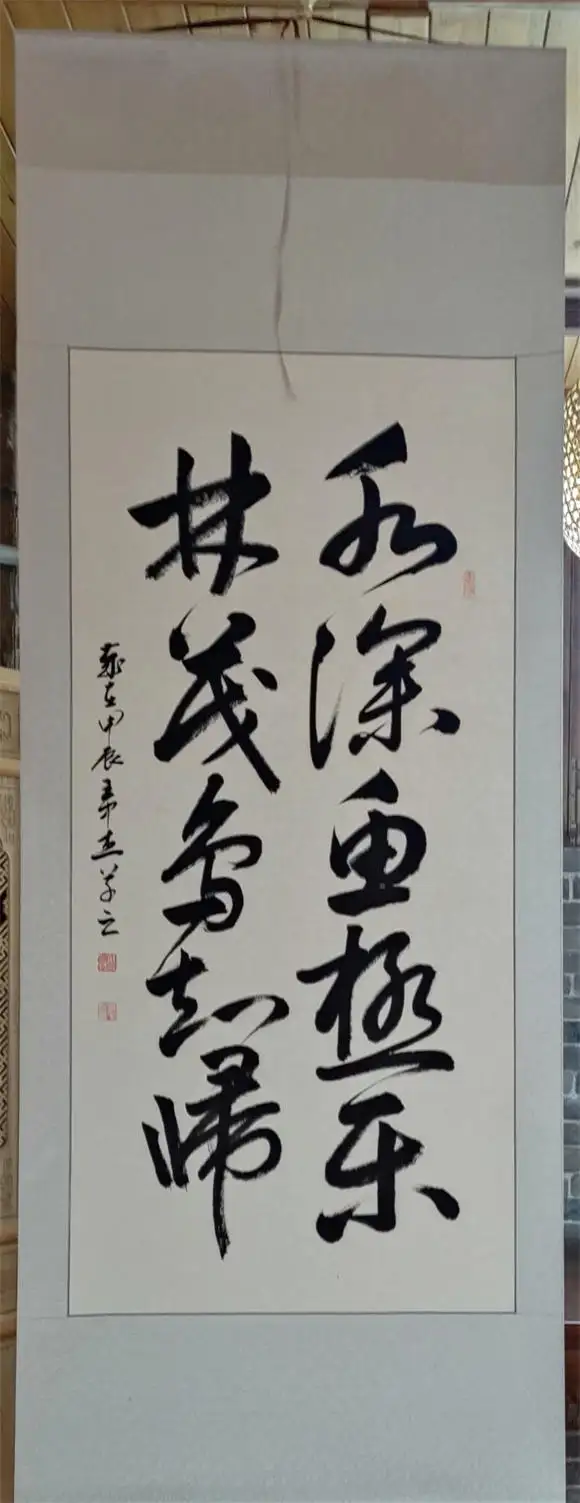 水深鱼极乐
林茂鸟知归
岁在甲辰